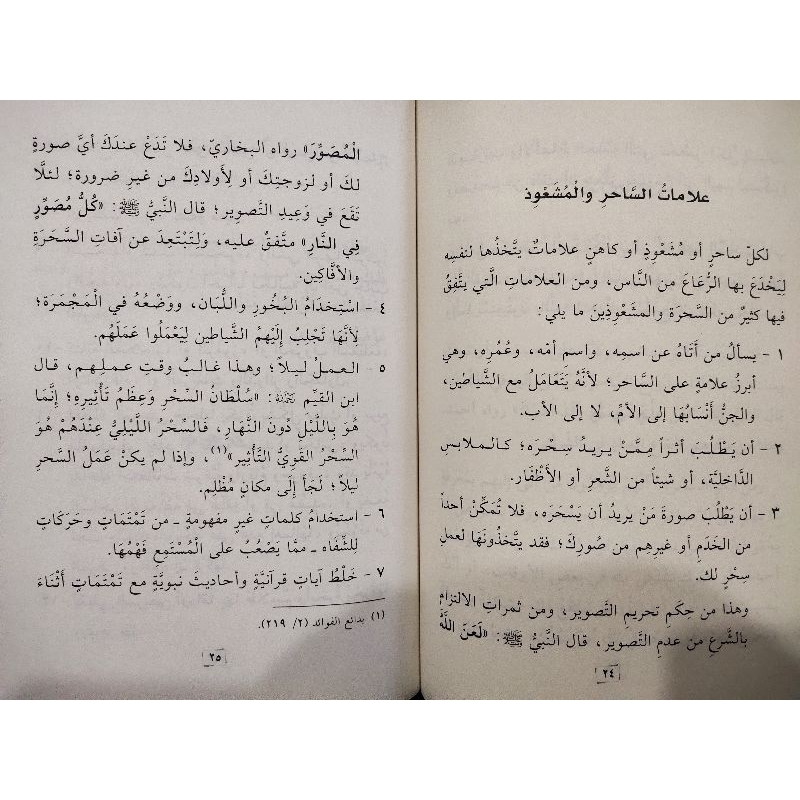 علاماتُ السَّاحرِ والْمُشَعْوِذ
لكلّ ساحرٍ أو مُشَعْوِذٍ أو كاهنٍ علاماتٌ يتَّخذُها لنفسِه
لِيَخْدَعَ بها الرُّعَاعَ من النَّاس، ومن العلاماتِ الَّتي يتَّفِقُ
فيها كثيرٌ من السَّحرة والمشَعْوِذِينَ ما يلي:
١ - يسألُ من أَتَاهُ عن اسمِه، واسم أمّه، وعُمُرِه، وهي
أبرزُ علامةٍ على السَّاحر؛ لأنَّهُ يَتَعَامَلُ مع الشَّياطين،
والجنُّ أَنْسَابُهَا إلى الأمِّ، لا إلى الأب.
٢ - أن يَطْلُبَ أثراً مِمَّنْ يريدُ سِحْرَه؛ كالملابسِ
الدَّاخليَّة، أو شيئاً من الشَّعرِ أو الأَظْفَار.
٣ - أن يَطْلُبَ صورةَ مَنْ يريدُ أن يَسْحَرَه، فلا تُمَكِّنْ أحداً
من الخَدَمِ أو غيرِهم من صُورِكَ؛ فقد يتَّخذُونَهَا لعملِ
سِحْرٍ لك.
وهذا من حِكَمِ تحريمِ التَّصوير، ومن ثمراتِ الالتزامِ
بالشَّرعِ من عدمِ التَّصوير، قال النَّبيُّ ﷺ: «لَعَنَ اللَّهُ
٢٤
الْمُصَوِّرَ» رواه البخاريّ، فلا تَدَعْ عندَكَ أيَّ صورةٍ
لكَ أو لزوجتِكَ أو لِأَولادِكَ من غيرِ ضرورة؛ لئلَّا
تَقَعَ في وَعِيدِ التَّصوير؛ قال النَّبيُّ ﷺ: «كُلُّ مُصَوِّرٍ
فِي النَّارِ» متَّفقٌ عليه، وَلِتَبْتَعِدَ عن آفاتِ السَّحَرَةِ
والأفَّاكين.
٤ - اسْتِخدَامُ البُخُورِ واللُّبَان، ووَضْعُهُ في الْمَجْمَرَة؛
لِأَنَّهَا تَجْلِبُ إِلَيْهِمُ الشَّياطين لِيَعْمَلُوا عَمَلَهُم.
٥ - العملُ ليلاً؛ وهذا غالبُ وقتِ عملِهم، قال
ابن القيِّم رحمه الله: «سُلْطَانُ السِّحْرِ وَعِظَمُ تَأْثِيرِهِ؛ إِنَّمَا
هُوَ بِاللَّيْلِ دُونَ النَّهَارِ، فَالسِّحْرُ اللَّيْلِيُّ عِنْدَهُمْ هُوَ
السِّحْرُ القَوِيُّ التَّأْثِير»(١)، وإذا لم يكنْ عَمَلُ السِّحرِ
ليلاً؛ لَجَأَ إِلَى مكانٍ مُظْلِم.
٦ - استخدامُ كلماتٍ غيرِ مفهومةٍ - من تَمْتَمَاتٍ وحَرَكَاتٍ
للِشِّفَاه - ممَّا يَصْعُبُ على الْمُسْتَمِعِ فَهْمُهَا.
٧ - خَلْطُ آياتٍ قرآنيَّةٍ وأحاديثَ نبويَّةٍ مع تَمْتَمَاتٍ أَثْنَاءَ
(١) بدائع الفوائد (٢/ ٢١٩).
٢٥